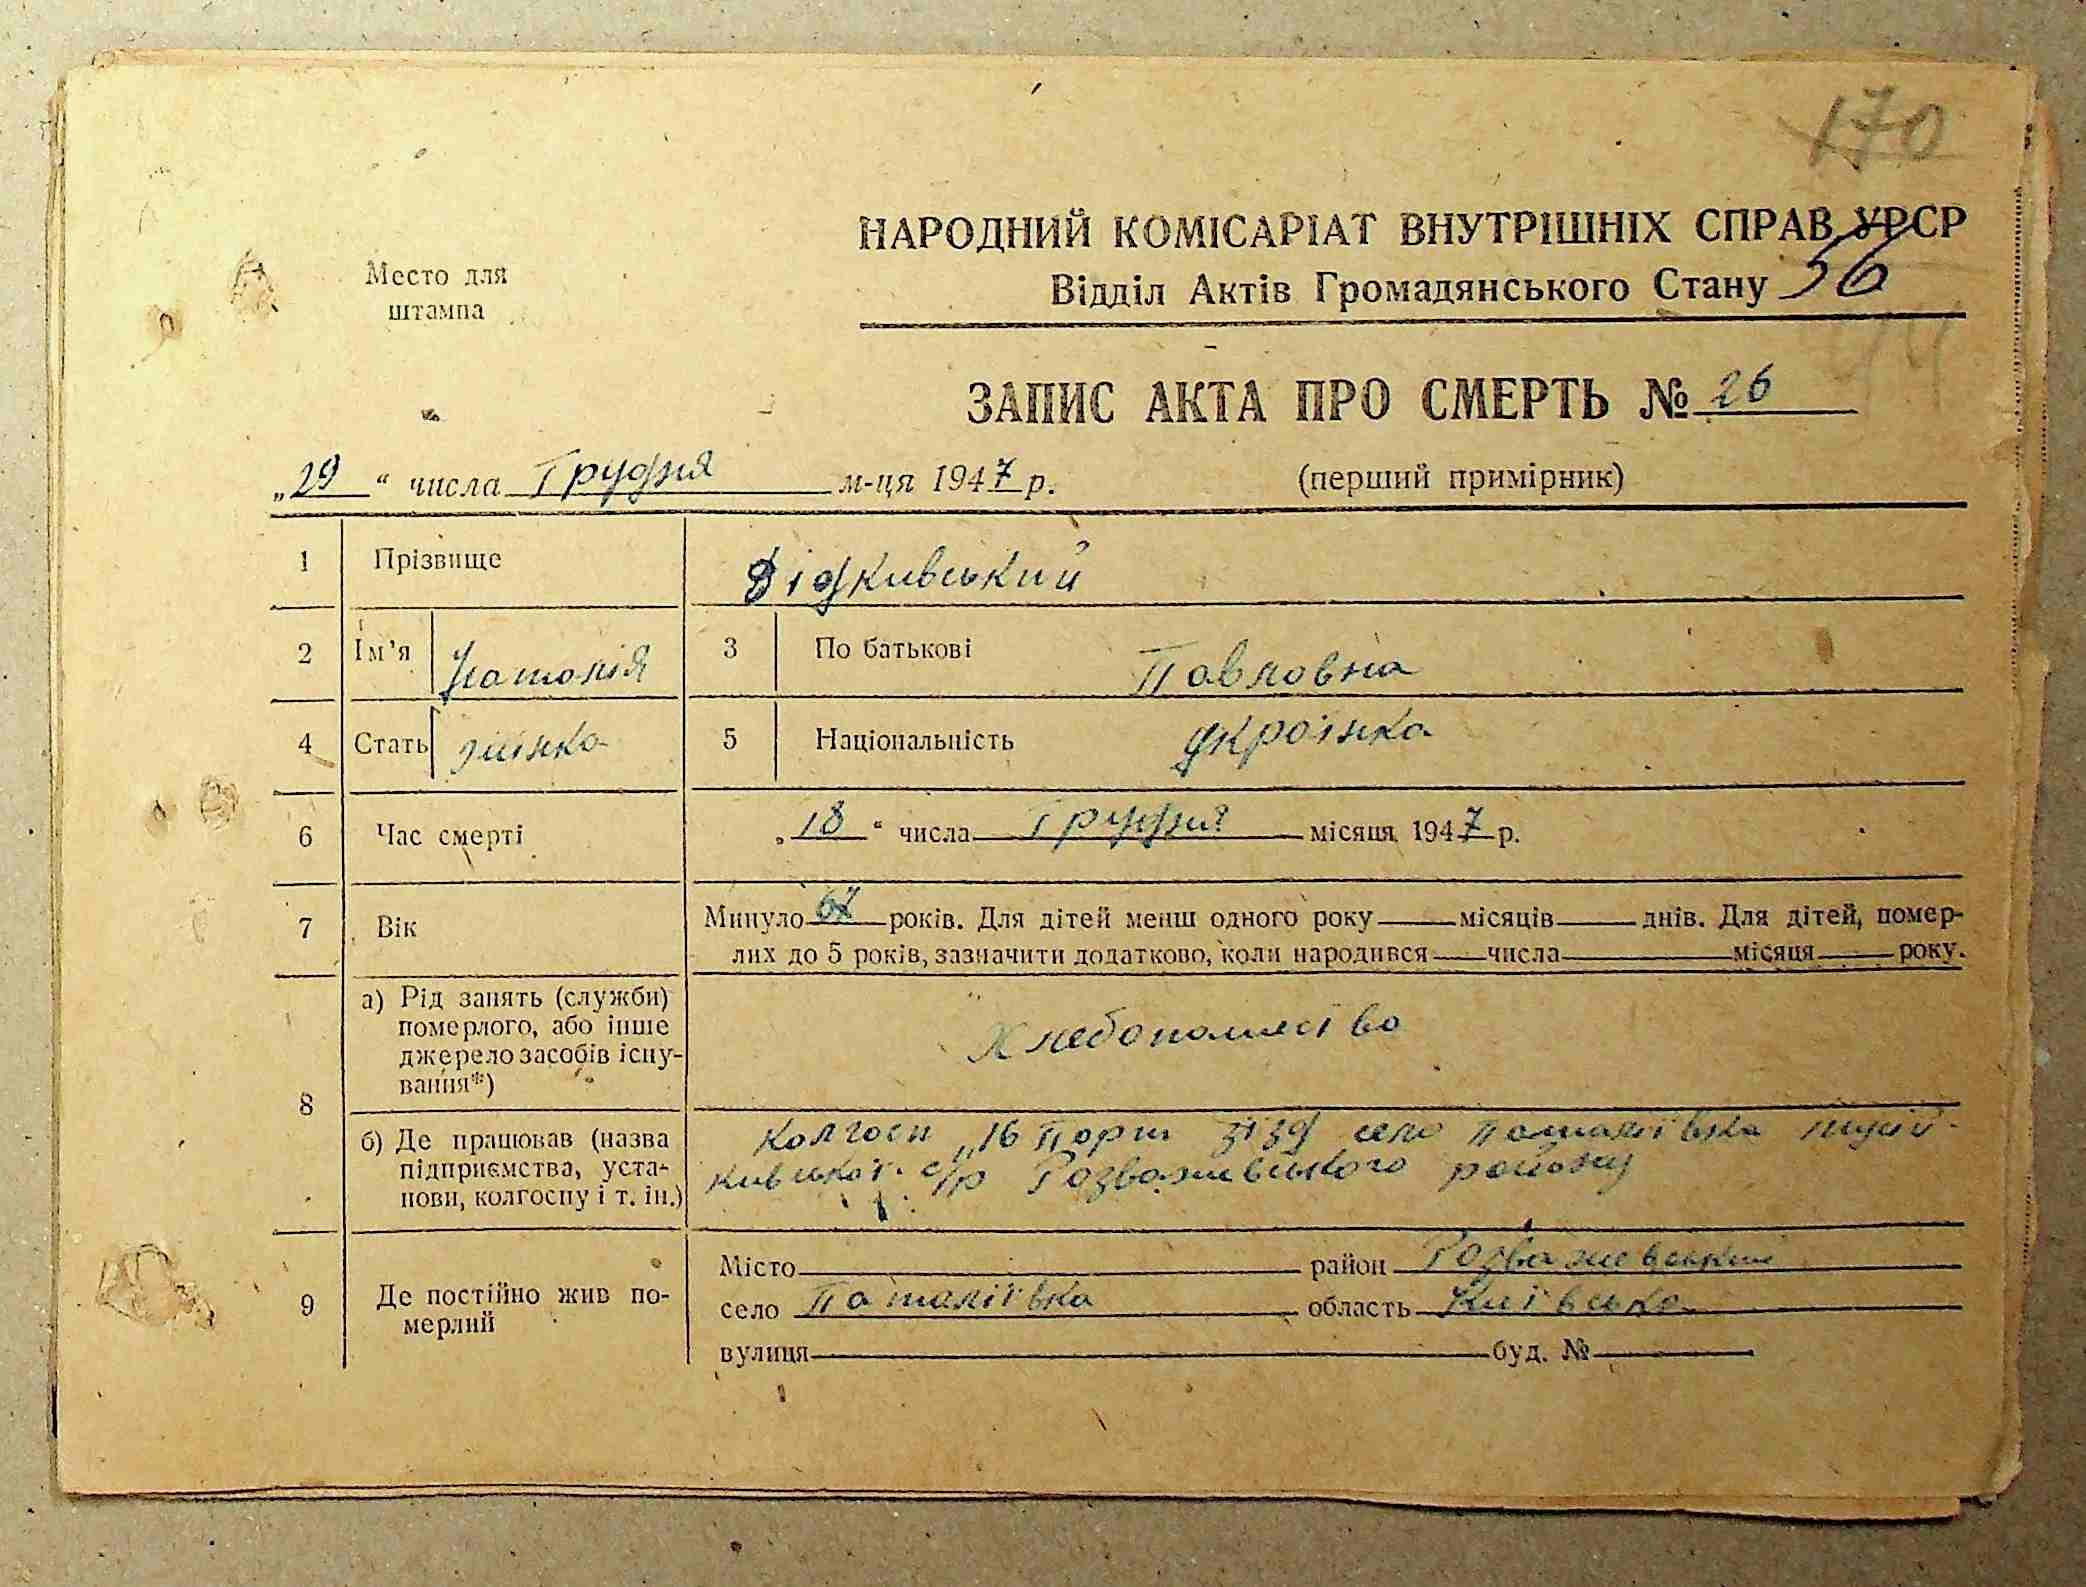 170
НАРОДНИЙ КОМІСАРІАТ ВНУТРІШНІХ СПРАВ УРСР
Место для
штампа
Відділ Актів Громадянського Стану 56
ЗАПИС АКТА ПРО СМЕРТЬ № 26
„29“ числа Грудня м-ця 1947 р. (перший примірник)
1 Прізвище Відкивський
2 Ім’я Наталія 3 По батькові Павловна
4 Стать жінка 5 Національність українка
6 Час смерті „18“ числа Грудня місяця 1947 р.
7 Вік Минуло 67 років. Для дітей менш одного року місяців днів. Для дітей, помер-
лих до 5 років, зазначити додатково, коли народився числа місяця року.
8 а) Рід занять (служби)
померлого, або інше
джерело засобів існу-
вання*)
Хлебопашество
б) Де працював (назва
підприємства, уста-
нови, колгоспу і т. ін.)
Колгосп „16 Парт зізд село Паталіївка
с/р Розважевського району
9 Де постійно жив по-
мерлий
Місто район Розважевський
село Паталіївка область Київська
вулиця буд. №